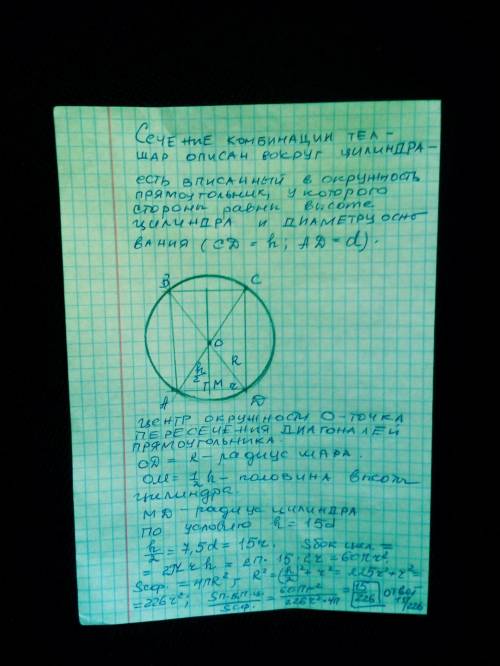 СЕЧЕНИЕ КОМБИНАЦИИ ТЕЛ -
ШАР ОПИСАН ВОКРУГ ЦИЛИНДРА -
ЕСТЬ ВПИСАННЫЙ В ОКРУЖНОСТЬ
ПРЯМОУГОЛЬНИК, У КОТОРОГО
СТОРОНЫ РАВНЫ ВЫСОТЕ
ЦИЛИНДРА И ДИАМЕТРУ ОСНО-
ВАНИЯ (CD = h; AD = d).
B C
O
h/2 R
A M r D
ЦЕНТР ОКРУЖНОСТИ O - ТОЧКА
ПЕРЕСЕЧЕНИЯ ДИАГОНАЛЕЙ
ПРЯМОУГОЛЬНИКА.
OD = R - РАДИУС ШАРА.
OM = 1/2 h - ПОЛОВИНА ВЫСОТЫ
ЦИЛИНДРА.
MD - РАДИУС ЦИЛИНДРА
ПО УСЛОВИЮ h = 15d
h/2 = 7,5d = 15r. Sбок цил =
= 2πr h = 2π · 15 · 2r = 60πr²
Sсф. = 4πR²; R² = (h/2)² + r² = 225r² + r² =
= 226r²; = 60πr²/226r²·4π = 15/226 ответ 15/226